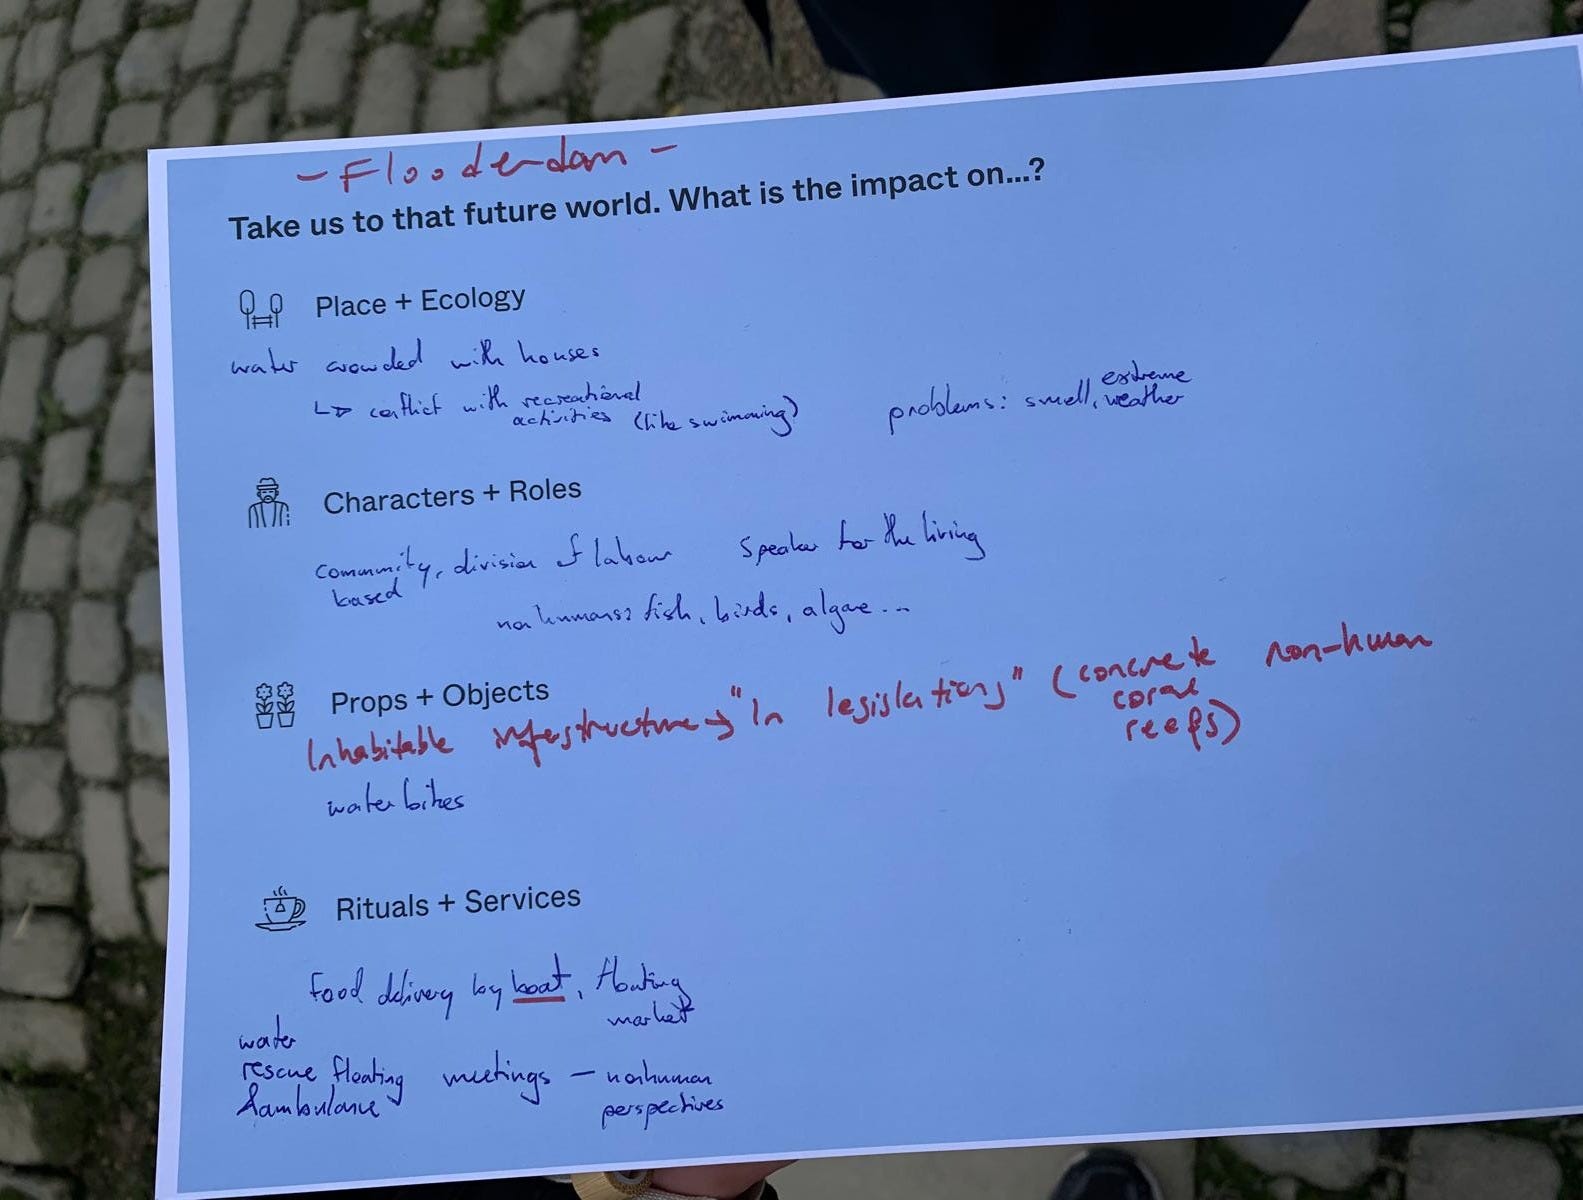 - Flooderdam -
Take us to that future world. What is the impact on...?
Place + Ecology
water crowded with houses
↳ conflict with recreational
activities (like swimming)
problems: smell, extreme
weather
Characters + Roles
community, division of labour
based
Speaker for the living
nonhumans: fish, birds, algae...
Props + Objects
Inhabitable infrastructure → "In legislation" (concrete non-human
coral
reefs)
water bikes
Rituals + Services
Food delivery by boat, floating
market
water
rescue floating meetings - nonhuman
&ambulance perspectives